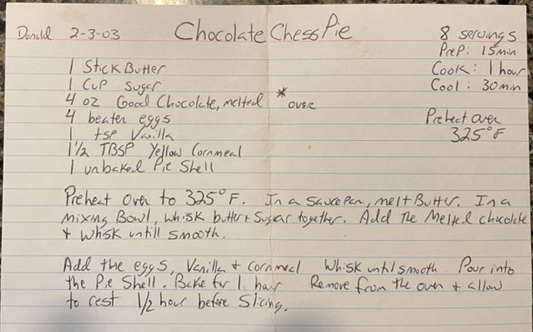 Donald 2-3-03 Chocolate Chess Pie 8 servings
Prep: 15min
Cook: 1 hour
Cool: 30min
Preheat oven
325°F
1 Stick Butter
1 Cup Sugar
4 oz Good Chocolate, melted *over
4 beaten eggs
1 tsp Vanilla
1 1/2 TBSP Yellow Cornmeal
1 unbaked Pie Shell
Preheat Oven to 325°F. In a saucepan, melt Butter. In a
mixing Bowl, whisk butter + Sugar together. Add the Melted chocolate
+ whisk untill smooth.
Add the eggs, Vanilla + cornmeal Whisk until smooth Pour into
the Pie Shell. Bake for 1 hour Remove from the oven + allow
to rest 1/2 hour before Slicing.